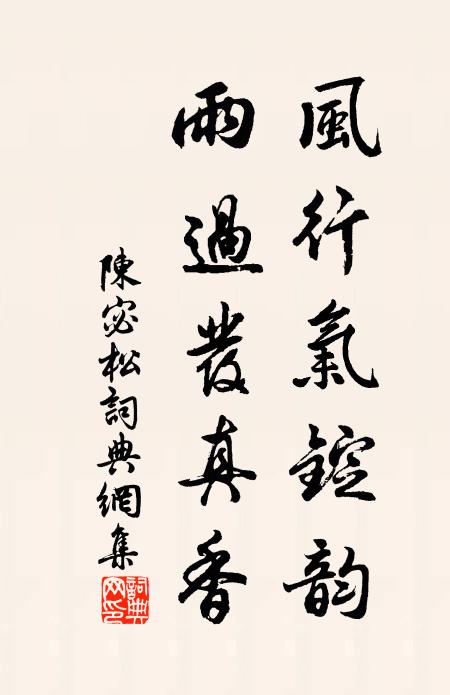 風行氣錠韵
雨過發真香
陳宓松詞典網集
詞典網印